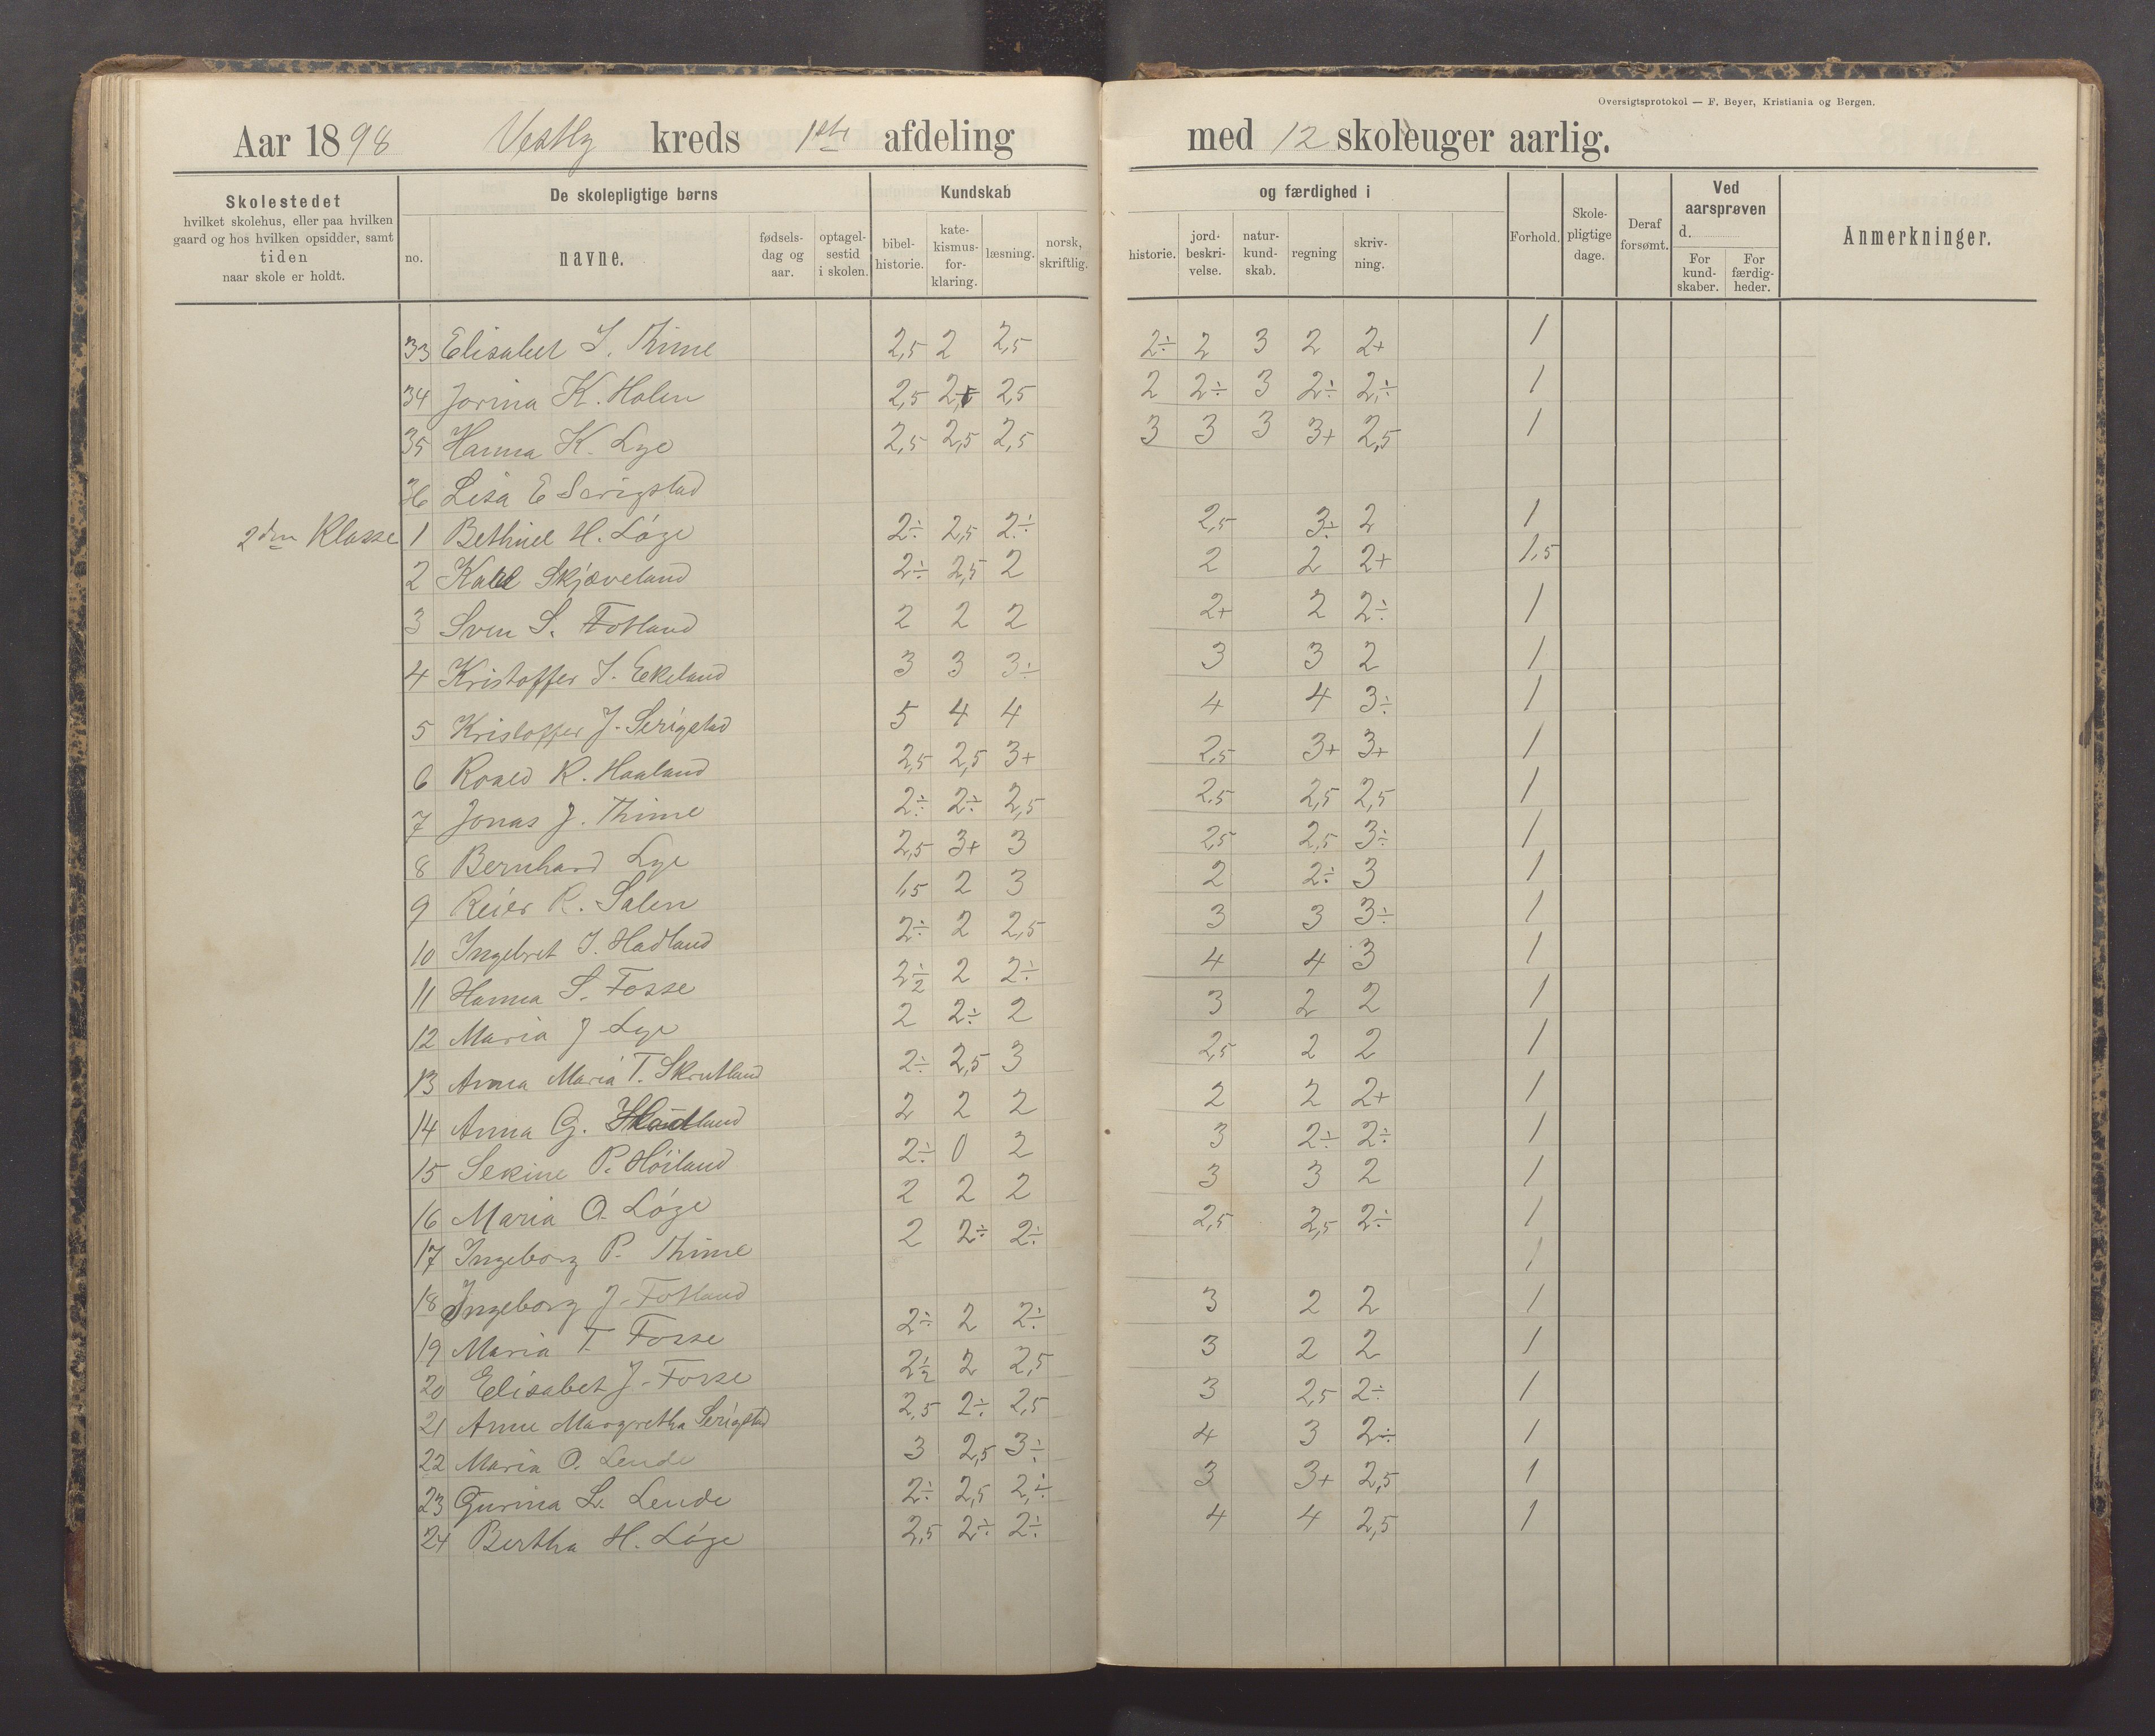 Oversigtsprotokol — F. Beyer, Kristiania og Bergen.
Aar 1898 Vestly kreds 1ste afdeling med 12 skoleuger aarlig.
Skolestedet hvilket skolehus, eller paa hvilken gaard og hos hvilken opsidder, samt tiden naar skole er holdt.
De skolepligtige børns
no. navne. fødselsdag og aar. optagelsestid i skolen.
Kundskab og færdighed i
bibelhistorie. katekismusforklaring. læsning. norsk, skriftlig. historie. jordbeskrivelse. naturkundskab. regning skrivning.
Forhold. Skolepligtige dage. Deraf forsømt.
Ved aarsprøven d.
For kundskaber. For færdigheder.
Anmerkninger.
33 Elisabet J. Thime 2,5 2 2,5 2÷ 2 3 2 2+ 1
34 Jorina K. Holen 2,5 2+ 2,5 2 2÷ 3 2÷ 2÷ 1
35 Hanna K. Lye 2,5 2,5 2,5 3 3 3 3+ 2,5 1
36 Lisa E Serigstad
2den Klasse 1 Bethuel H. Löge 2÷ 2,5 2÷ 2,5 3÷ 2 1
2 Karl Skjæveland 2÷ 2,5 2 2 2 2+ 1,5
3 Sven S. Fotland 2 2 2 2+ 2 2÷ 1
4 Kristoffer J. Eikeland 3 3 3÷ 3 3 2 1
5 Kristoffer J. Serigstad 5 4 4 4 4 3÷ 1
6 Roald R. Haaland 2,5 2,5 3+ 2,5 3+ 3+ 1
7 Jonas J. Thime 2÷ 2÷ 2,5 2,5 2,5 2,5 1
8 Bernhard Lye 2,5 3+ 3 2,5 2,5 3÷ 1
9 Reier R. Salen 1,5 2 3 2 2÷ 3 1
10 Ingebret J. Hadland 2÷ 2 2,5 3 3 3÷ 1
11 Hanna S. Fosse 2½ 2 2÷ 4 4 3 1
12 Maria J Lye 2 2÷ 2 3 2 2 1
13 Anna Maria T. Skrutland 2÷ 2,5 3 2,5 2 2 1
14 Anna G. Hadland 2 2 2 2 2 2+ 1
15 Sekine P. Höiland 2÷ 0 2 3 2÷ 2÷ 1
16 Maria O. Löge 2 2 2 3 3 2 1
17 Ingeborg P. Thime 2 2÷ 2÷ 2,5 2,5 2÷ 1
18 Ingeborg J. Fotland 1
19 Maria T. Fosse 2÷ 2 2÷ 3 2 2 1
20 Elisabet J. Fosse 2½ 2 2,5 3 2 2 1
21 Anne Margretha Serigstad 2,5 2÷ 2,5 3 2,5 2÷ 1
22 Maria O. Lende 3 2,5 3÷ 4 3 2÷ 1
23 Gurina L. Lende 2÷ 2,5 2÷ 3 3+ 2,5 1
24 Bertha H. Löge 2,5 2÷ 2÷ 4 4 2,5 1